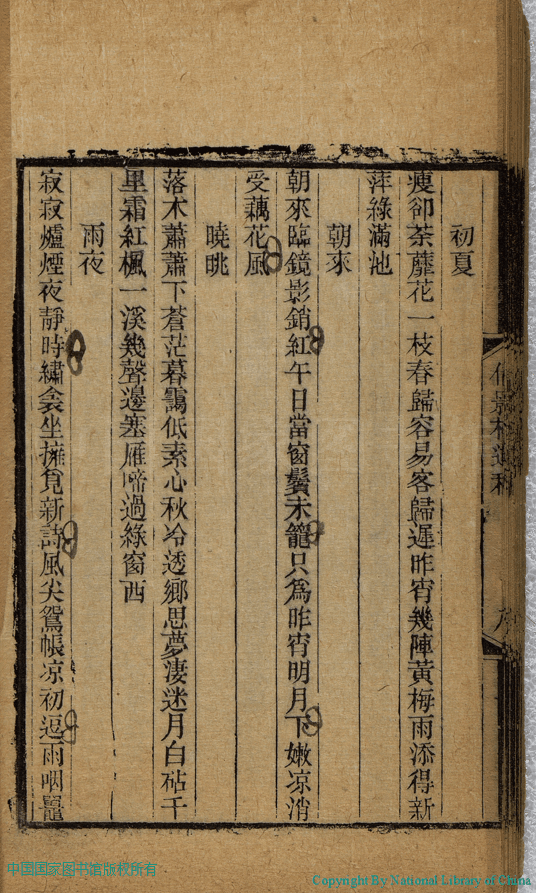 初夏
瘦卻荼蘼花一枝春歸容易客歸遲昨宵幾陣黃梅雨添得新
萍綠滿池
朝來
朝來臨鏡影銷紅午日當窗鬢未籠只為昨宵明月下嫩凉消
受藕花風
曉眺
落木蕭蕭下蒼茫暮靄低素心秋冷透鄉思夢淒迷月白砧千
里霜紅楓一溪幾聲邊塞雁啼過綠窗西
雨夜
寂寂爐煙夜靜時繡衾坐擁覓新詩風尖鴛帳凉初逗雨咽鼉
中国国家图书馆版权所有
Copyright By National Library of China